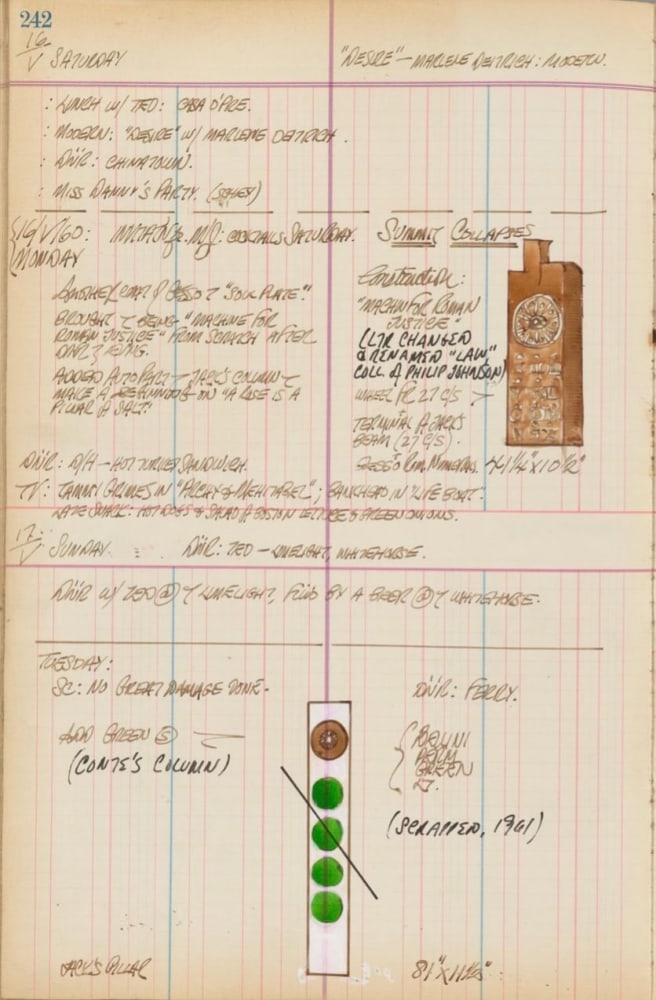 242
16
V SATURDAY
"DESIRE" — MARLENE DEITRICH: MODERN.
: LUNCH W/ TED: CASA D'PRE.
: MODERN: "DESIRE" W/ MARLENE DEITRICH.
: DN'R: CHINATOWN.
: MISS DANNY'S PARTY.
16/V/60: COCKTAILS SATURDAY.
MONDAY
SUMMIT COLLAPSES
ANOTHER COAT OF GESSO "SOUL PLATE."
BROUGHT BEING "MACHINE FOR
ROMAN JUSTICE" FROM SCRATCH AFTER
ADDED AUTO PART — JACK'S COLUMN
MAKE A BEGINNING ON "A ROSE IS A
PILLAR OF SALT."
Construction:
"MACHIN FOR ROMAN
JUSTICE"
(LTR CHANGED
& RENAMED "LAW,"
COLL. OF PHILIP JOHNSON)
WHEEL FR 27 C/S
TERMINAL OF JACK'S
BEAM (27 C/S).
GESSO'D ROM. NUMERALS.
44 1/4" X 10 1/2"
DN'R: @/H — HOT TURKEY SANDWICH.
TV: TAMMY GRIMES IN "ARCHY & MEHITABEL"; BANKHEAD IN "LIFE BOAT".
LATE SNACK: HOT DOGS & SALAD OF BOSTON LETTUCE & GREEN ONIONS.
17
V SUNDAY
DN'R: TED — LIMELIGHT, WHITEHORSE.
DN'R W/ TED @ LIMELIGHT, FL'D BY A BEER @ WHITEHORSE.
TUESDAY:
SC: NO GREAT DAMAGE DONE.
DN'R: FERRY.
ADD GREEN
(CONTE'S COLUMN)
GREEN
(SCRAPPED, 1961)
JACK'S PILLAR
81" X 11 1/2"